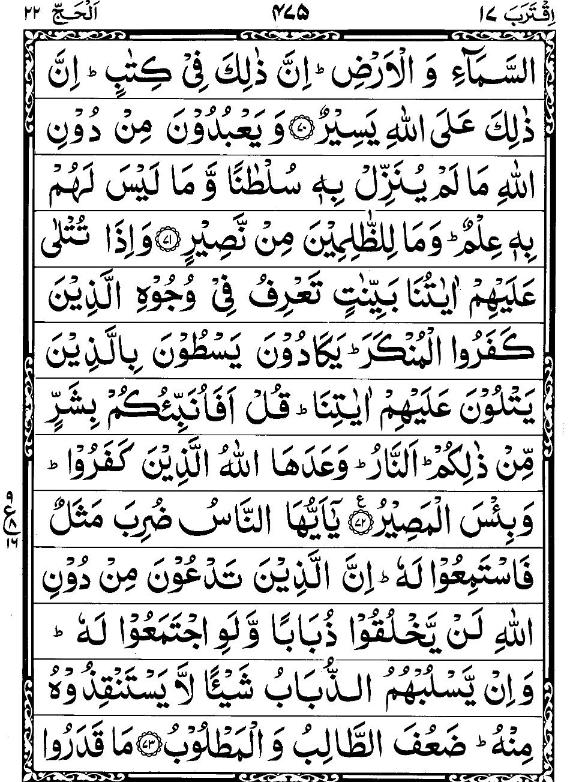 اِقْتَرَبَ ١٧ ۴۷۵ اَلْحَجّ ٢٢
السَّمَآءِ وَ الْاَرْضِ ؕ اِنَّ ذٰلِكَ فِیْ كِتٰبٍ ؕ اِنَّ
ذٰلِكَ عَلَی اللهِ یَسِیْرٌ ﴿۷۰﴾ وَ یَعْبُدُوْنَ مِنْ دُوْنِ
اللهِ مَا لَمْ یُنَزِّلْ بِهٖ سُلْطٰنًا وَّ مَا لَیْسَ لَهُمْ
بِهٖ عِلْمٌ ؕ وَمَا لِلظّٰلِمِیْنَ مِنْ نَّصِیْرٍ ﴿۷۱﴾ وَاِذَا تُتْلٰی
عَلَیْهِمْ اٰیٰتُنَا بَیِّنٰتٍ تَعْرِفُ فِیْ وُجُوْهِ الَّذِیْنَ
كَفَرُوا الْمُنْكَرَ ؕ یَكَادُوْنَ یَسْطُوْنَ بِالَّذِیْنَ
یَتْلُوْنَ عَلَیْهِمْ اٰیٰتِنَا ؕ قُلْ اَفَاُنَبِّئُكُمْ بِشَرٍّ
مِّنْ ذٰلِكُمْ ؕ اَلنَّارُ ؕ وَعَدَهَا اللهُ الَّذِیْنَ كَفَرُوْا ؕ
وَبِئْسَ الْمَصِیْرُ ﴿۷۲﴾ ع یٰۤاَیُّهَا النَّاسُ ضُرِبَ مَثَلٌ
۹ ع ۸ ١٦
فَاسْتَمِعُوْا لَهٗ ؕ اِنَّ الَّذِیْنَ تَدْعُوْنَ مِنْ دُوْنِ
اللهِ لَنْ یَّخْلُقُوْا ذُبَابًا وَّلَوِ اجْتَمَعُوْا لَهٗ ؕ
وَاِنْ یَّسْلُبْهُمُ الذُّبَابُ شَیْئًا لَّا یَسْتَنْقِذُوْهُ
مِنْهُ ؕ ضَعُفَ الطَّالِبُ وَ الْمَطْلُوْبُ ﴿۷۳﴾ مَا قَدَرُوا